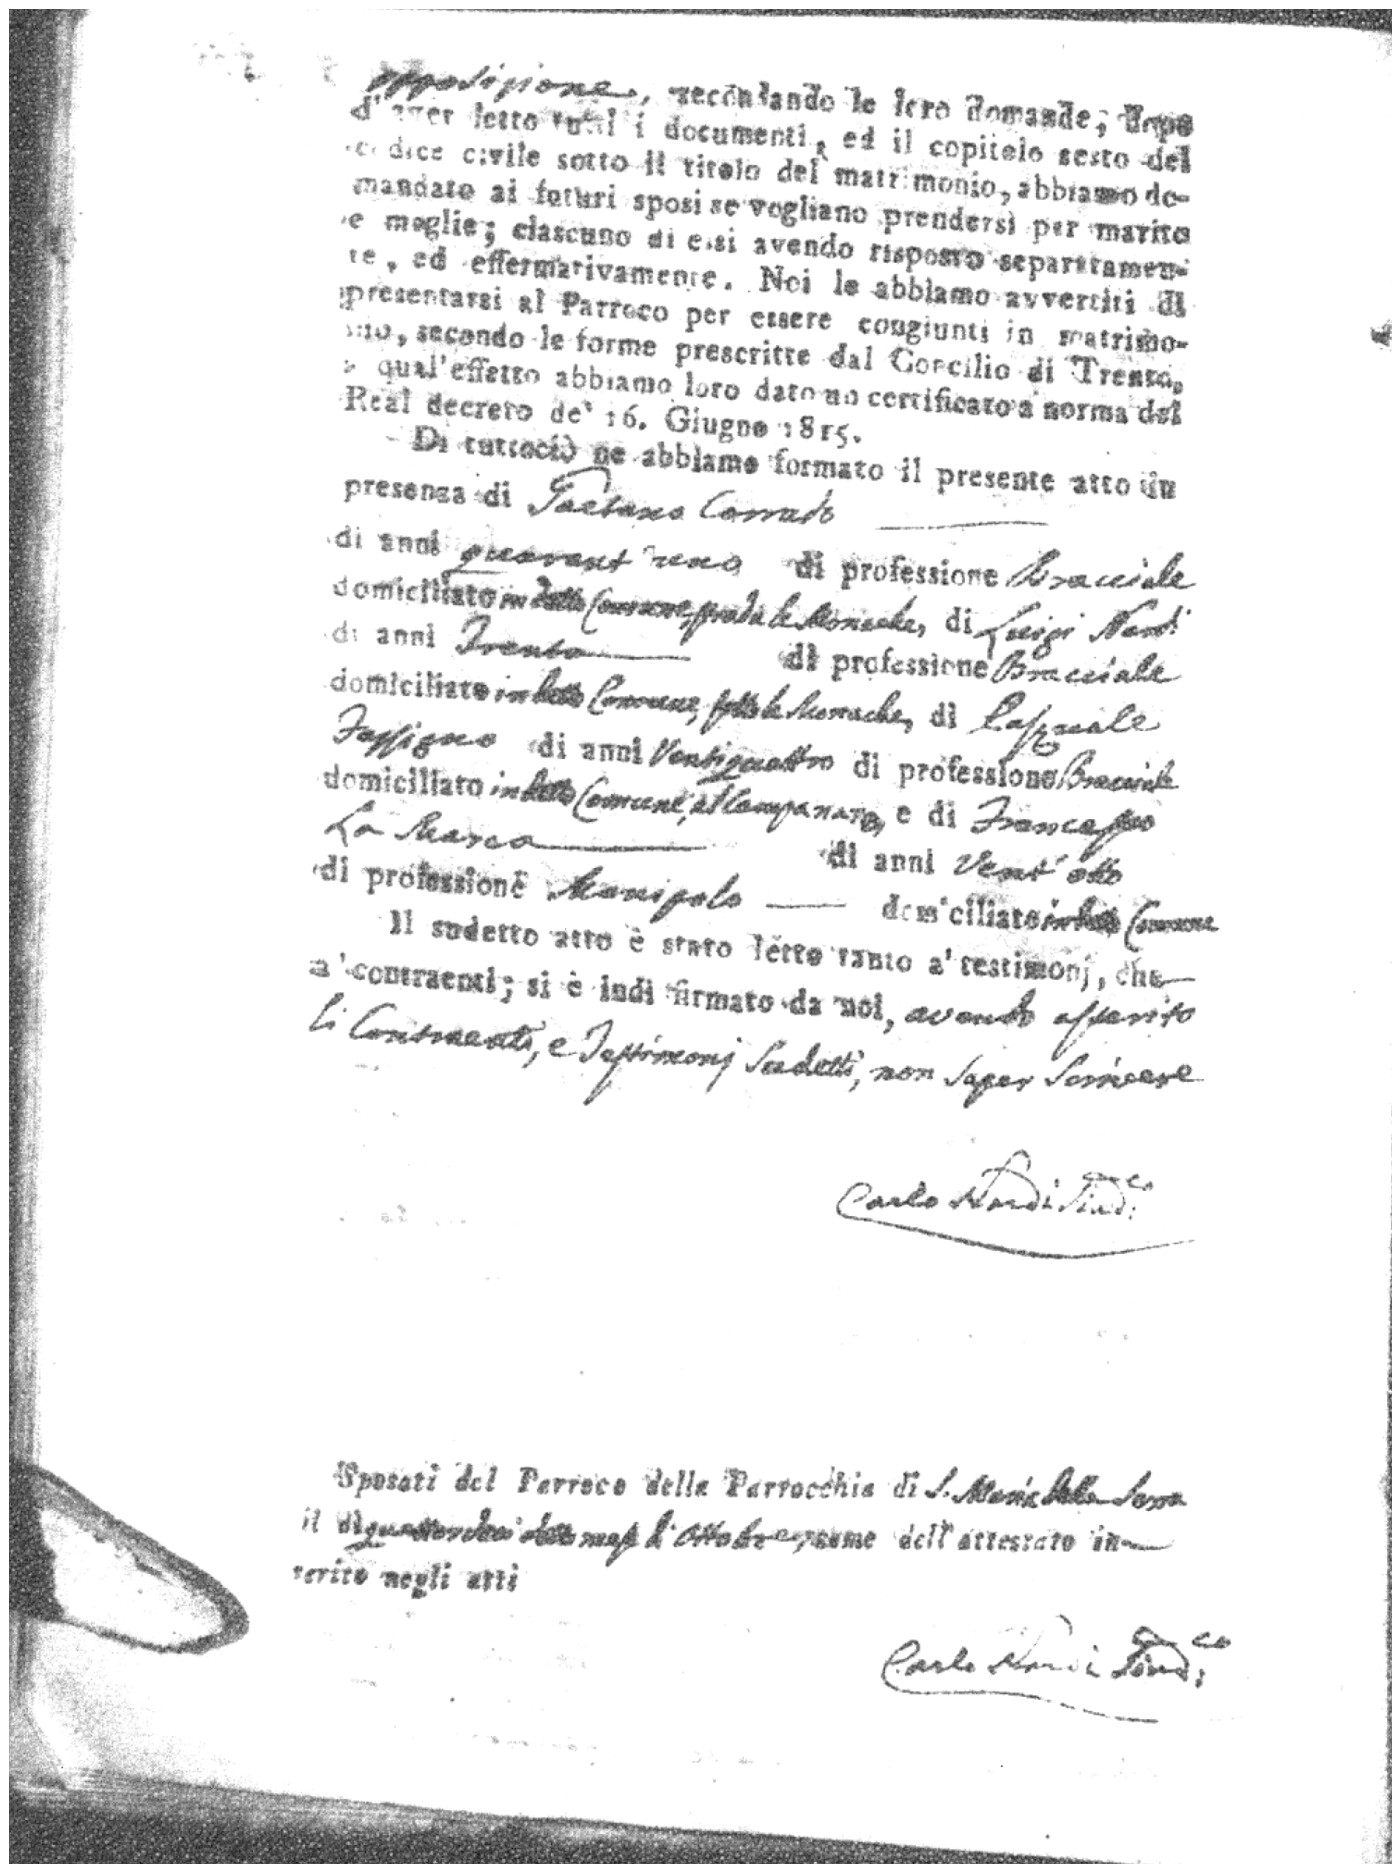 opposizione, secondando le loro domande; dopo
d'aver letto tutti i documenti, ed il copitolo sesto del
codice civile sotto il titolo del matrimonio, abbiamo do-
mandato ai futuri sposi se vogliano prendersi per marito
e moglie; ciascuno di essi avendo risposto separatamen-
te, ed effermativamente. Noi le abbiamo avvertiti di
presentarsi al Parroco per essere congiunti in matrimo-
nio, secondo le forme prescritte dal Concilio di Trento,
a qual'effetto abbiamo loro dato un certificato a norma del
Real decreto de' 16. Giugno 1815.
Di tuttociò ne abbiamo formato il presente atto in
presenza di Gaetano Corrado
di anni quarant'uno di professione Bracciale
domiciliato in detto Comune, strada le Monache, di Luigi Nardi
di anni Trenta di professione Bracciale
domiciliato in detto Comune, sotto le Monache, di Pasquale
Fassigno di anni Ventiquattro di professione Bracciale
domiciliato in detto Comune, al Campanaro, e di Francesco
La Marca di anni Vent'otto
di professione Manipolo domiciliato in detto Comune
Il sudetto atto è stato letto tanto a' testimonj, che
a' contraenti; si è indi firmato da noi, avendo asserito
li Contraenti, e Testimonj Sudetti, non saper scrivere
Carlo Nardi Sind.co
Sposati del Parroco della Parrocchia di S. Maria della Serra
il dì quattordici detto mese d'Ottobre, come dell'attestato in-
serito negli atti
Carlo Nardi Sind.co